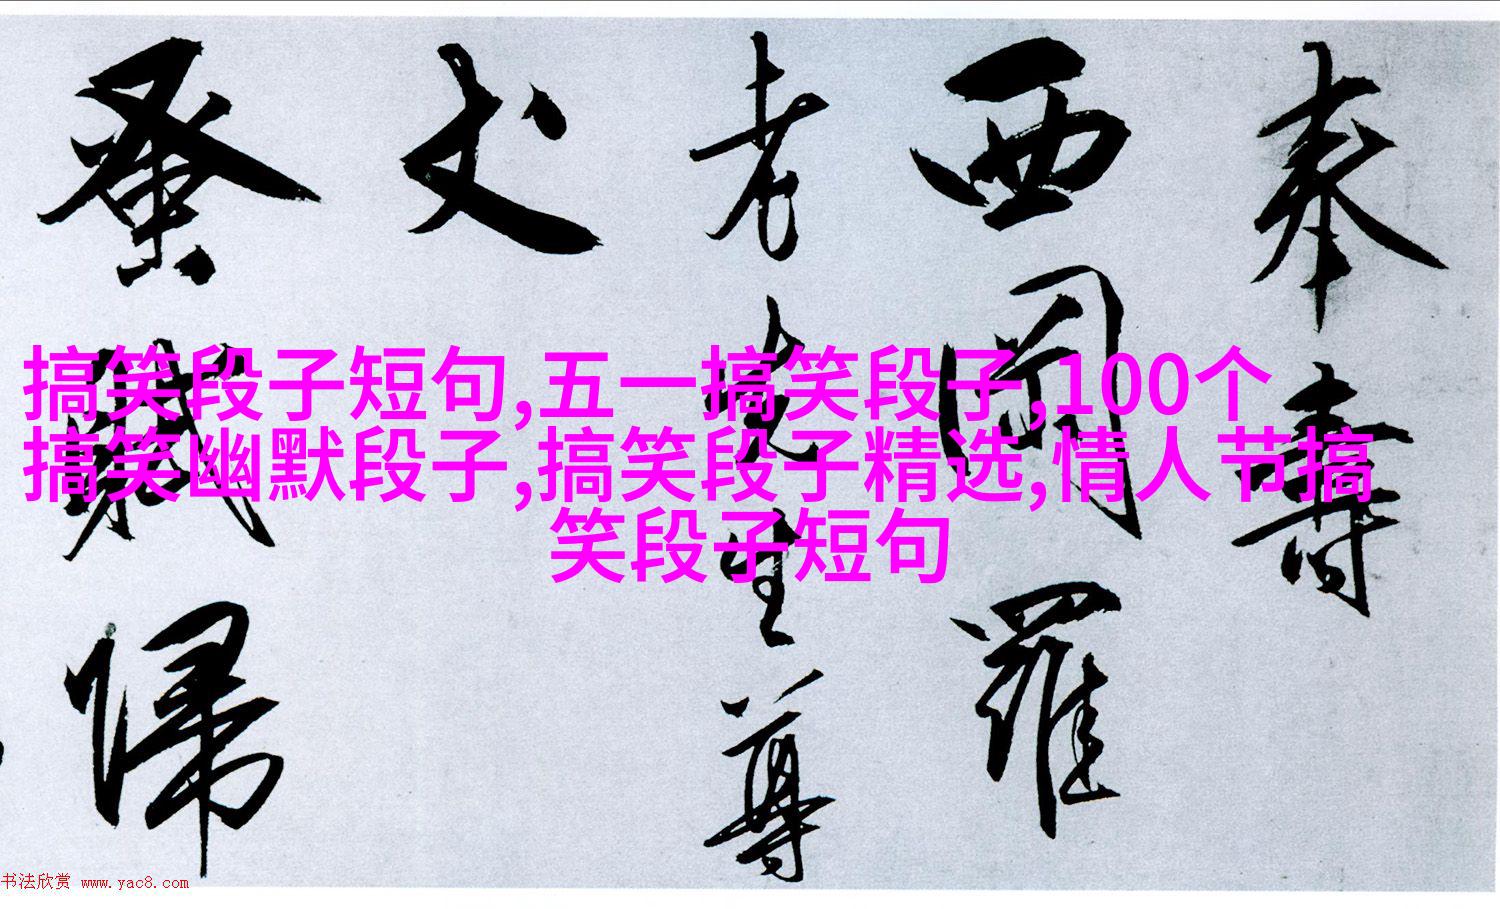 奉壽
西羅
老先生尊
丈
蚤賦歸
搞笑段子短句,五一搞笑段子,100个
搞笑幽默段子,搞笑段子精选,情人节搞
笑段子短句
书法欣赏 www.yac8.com